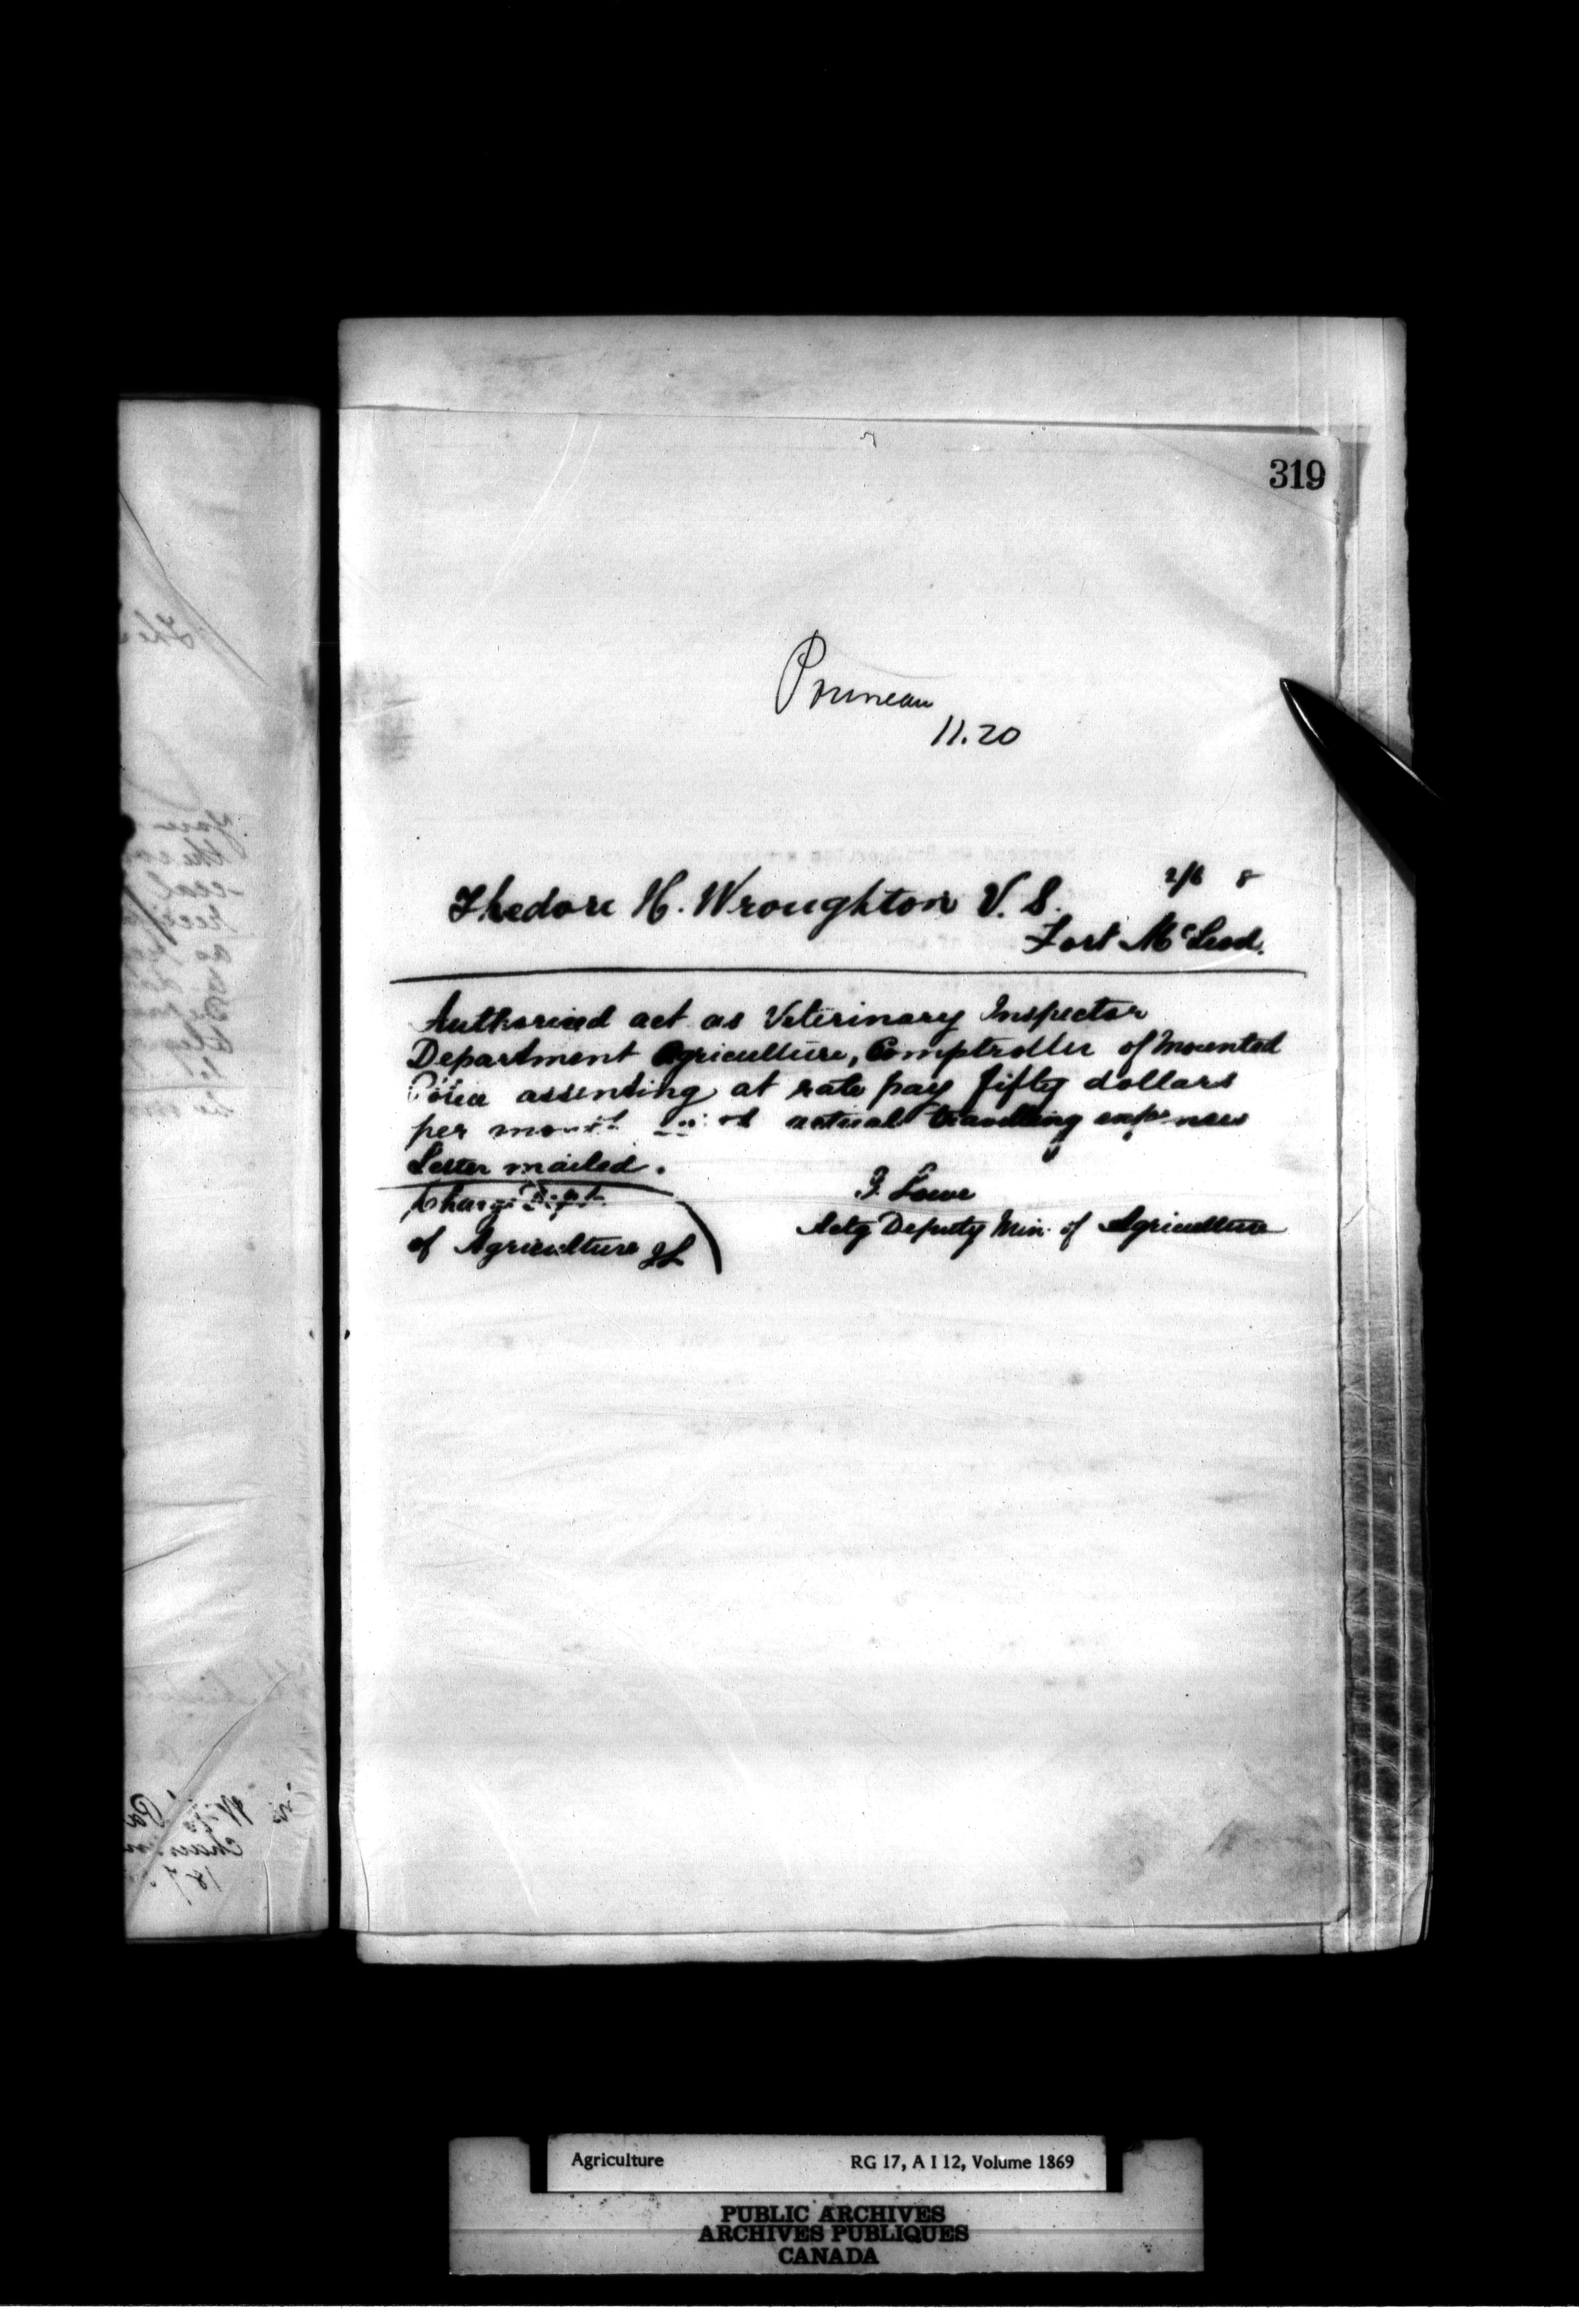 319
Pruneau
11.20
2/6 8
Thedore H. Wroughton V. S.
Fort McLeod.
Authorized act as Veterinary Inspector
Department Agriculture, Comptroller of Mounted
Police assenting at rate pay fifty dollars
per month actual travelling expenses
Letter mailed.
Charge Dept
of Agriculture JL
J. Lowe
Actg Deputy Min. of Agriculture
Agriculture RG 17, A I 12, Volume 1869
PUBLIC ARCHIVES
ARCHIVES PUBLIQUES
CANADA